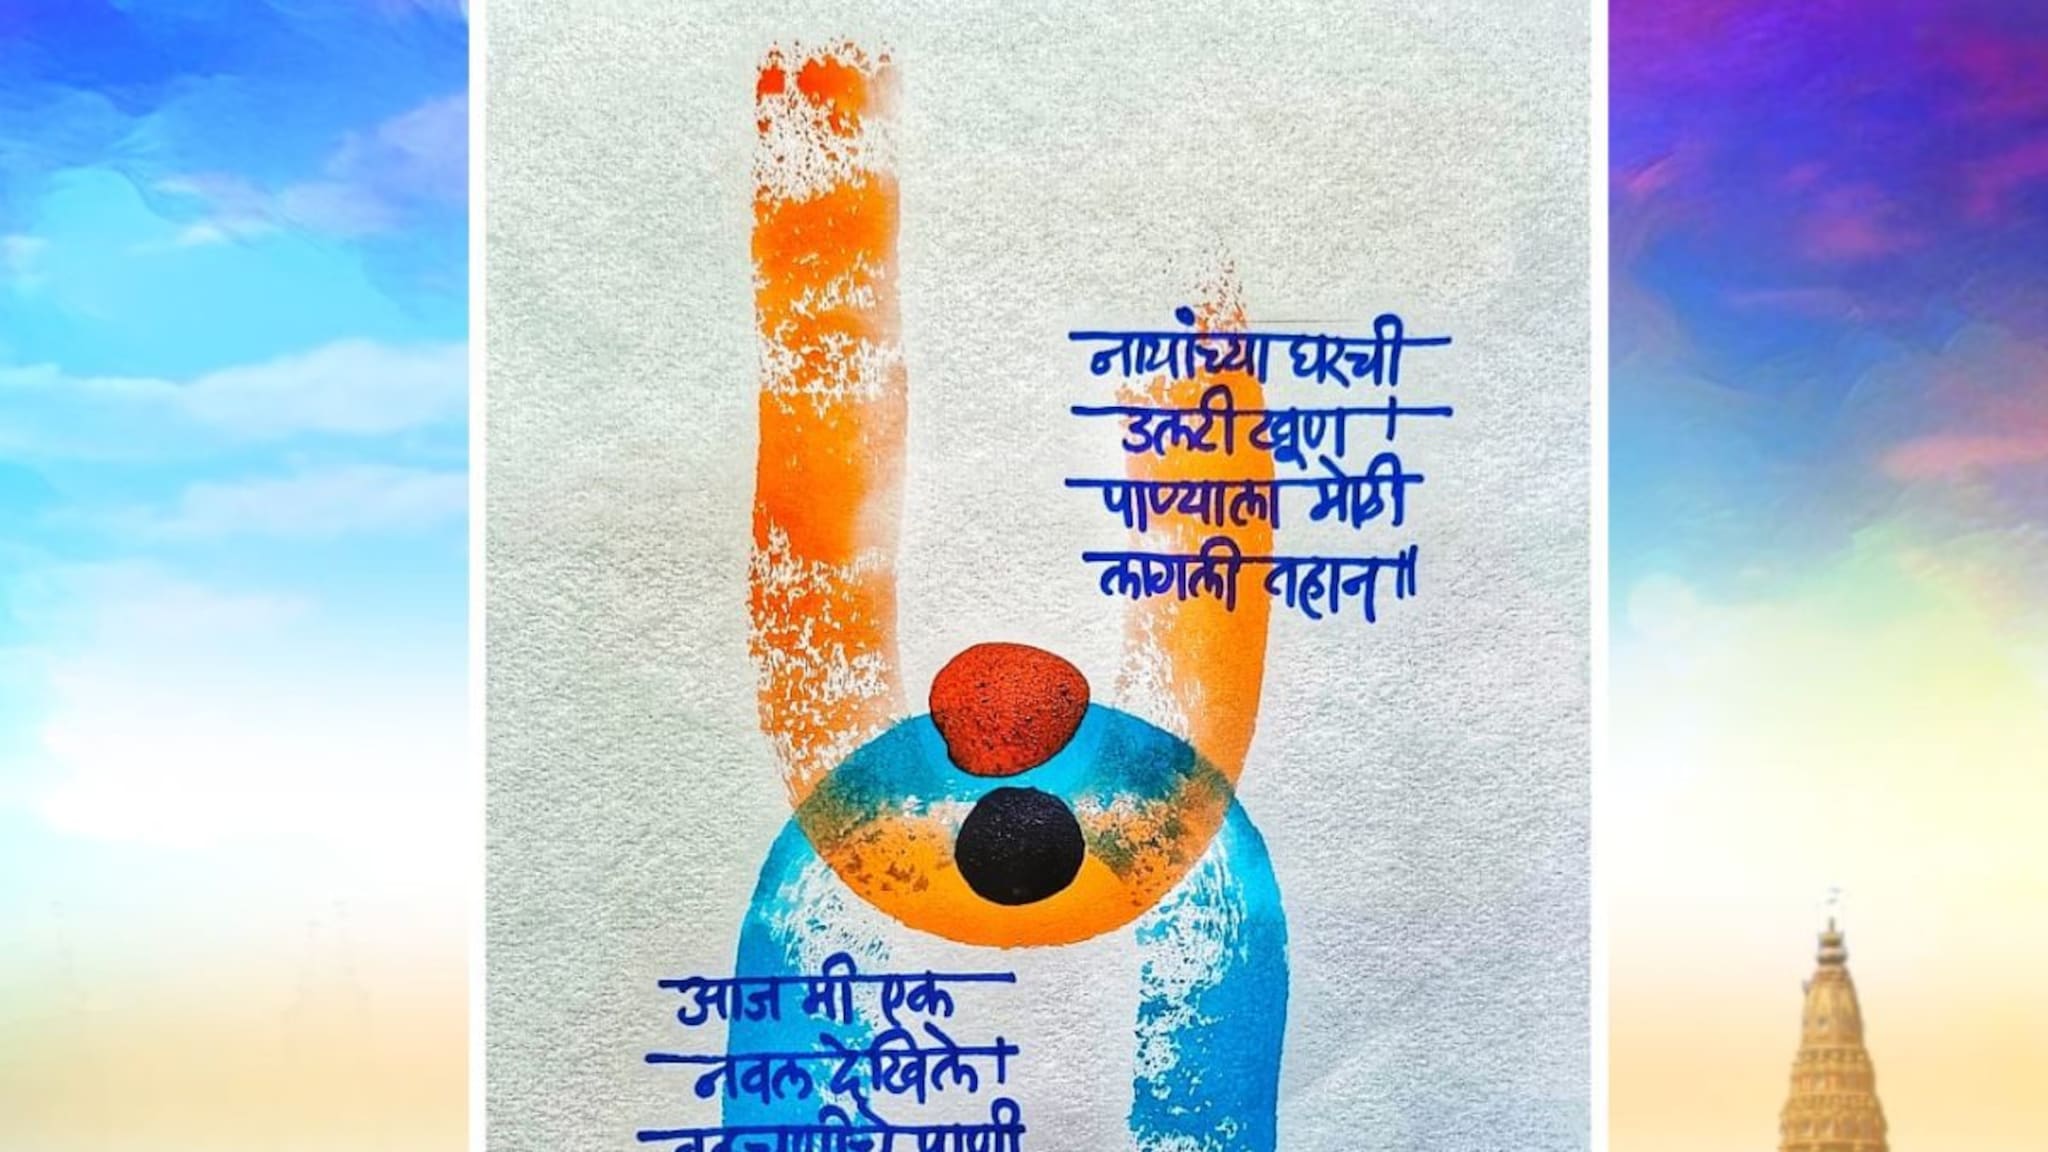 नाथांच्या घरची
उलटी खूण ।
पाण्याला मोठी
लागली तहान ॥
आज मी एक
नवल देखिले ।
वळचणीचे पाणी